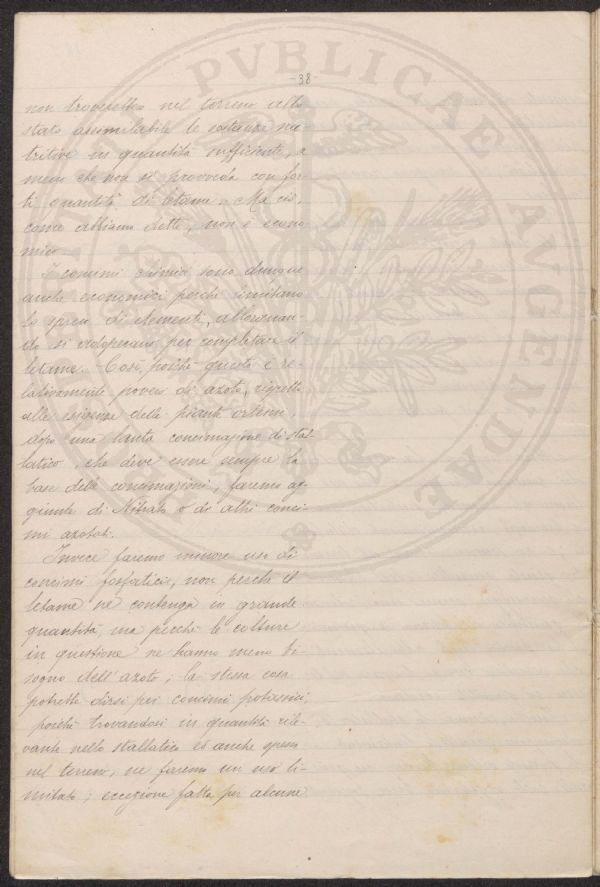 -38-
non troverebbe nel terreno allo
stato assimilabile le sostanze nu-
tritive in quantità sufficiente, a
meno che non si provveda con for-
ti quantità di letami. Ma ciò,
come abbiamo detto, non è econo-
mico.
I concimi chimici sono dunque
anche economici perchè limitano
lo spreco di elementi, allorquan-
do si adoperano per completare il
letame. Così, poichè questo è re-
lativamente povero di azoto, rispetto
alle esigenze delle piante ortensi,
dopo una lauta concimazione di stal-
latico, che deve essere sempre la
base delle concimazioni, faremo ag-
giunte di Nitrato o di altri conci-
mi azotati.
Invece faremo minore uso di
concimi fosfatici, non perchè il
letame ne contenga in grande
quantità, ma perchè le colture
in questione ne hanno meno bi-
sogno dell'azoto; la stessa cosa
potrebbe dirsi pei concimi potassici,
poichè trovandosi in quantità rile-
vante nello stallatico ed anche spesso
nel terreno, ne faremo un uso li-
mitato; eccezione fatta per alcune
PVBLICAE
AVGENDAE